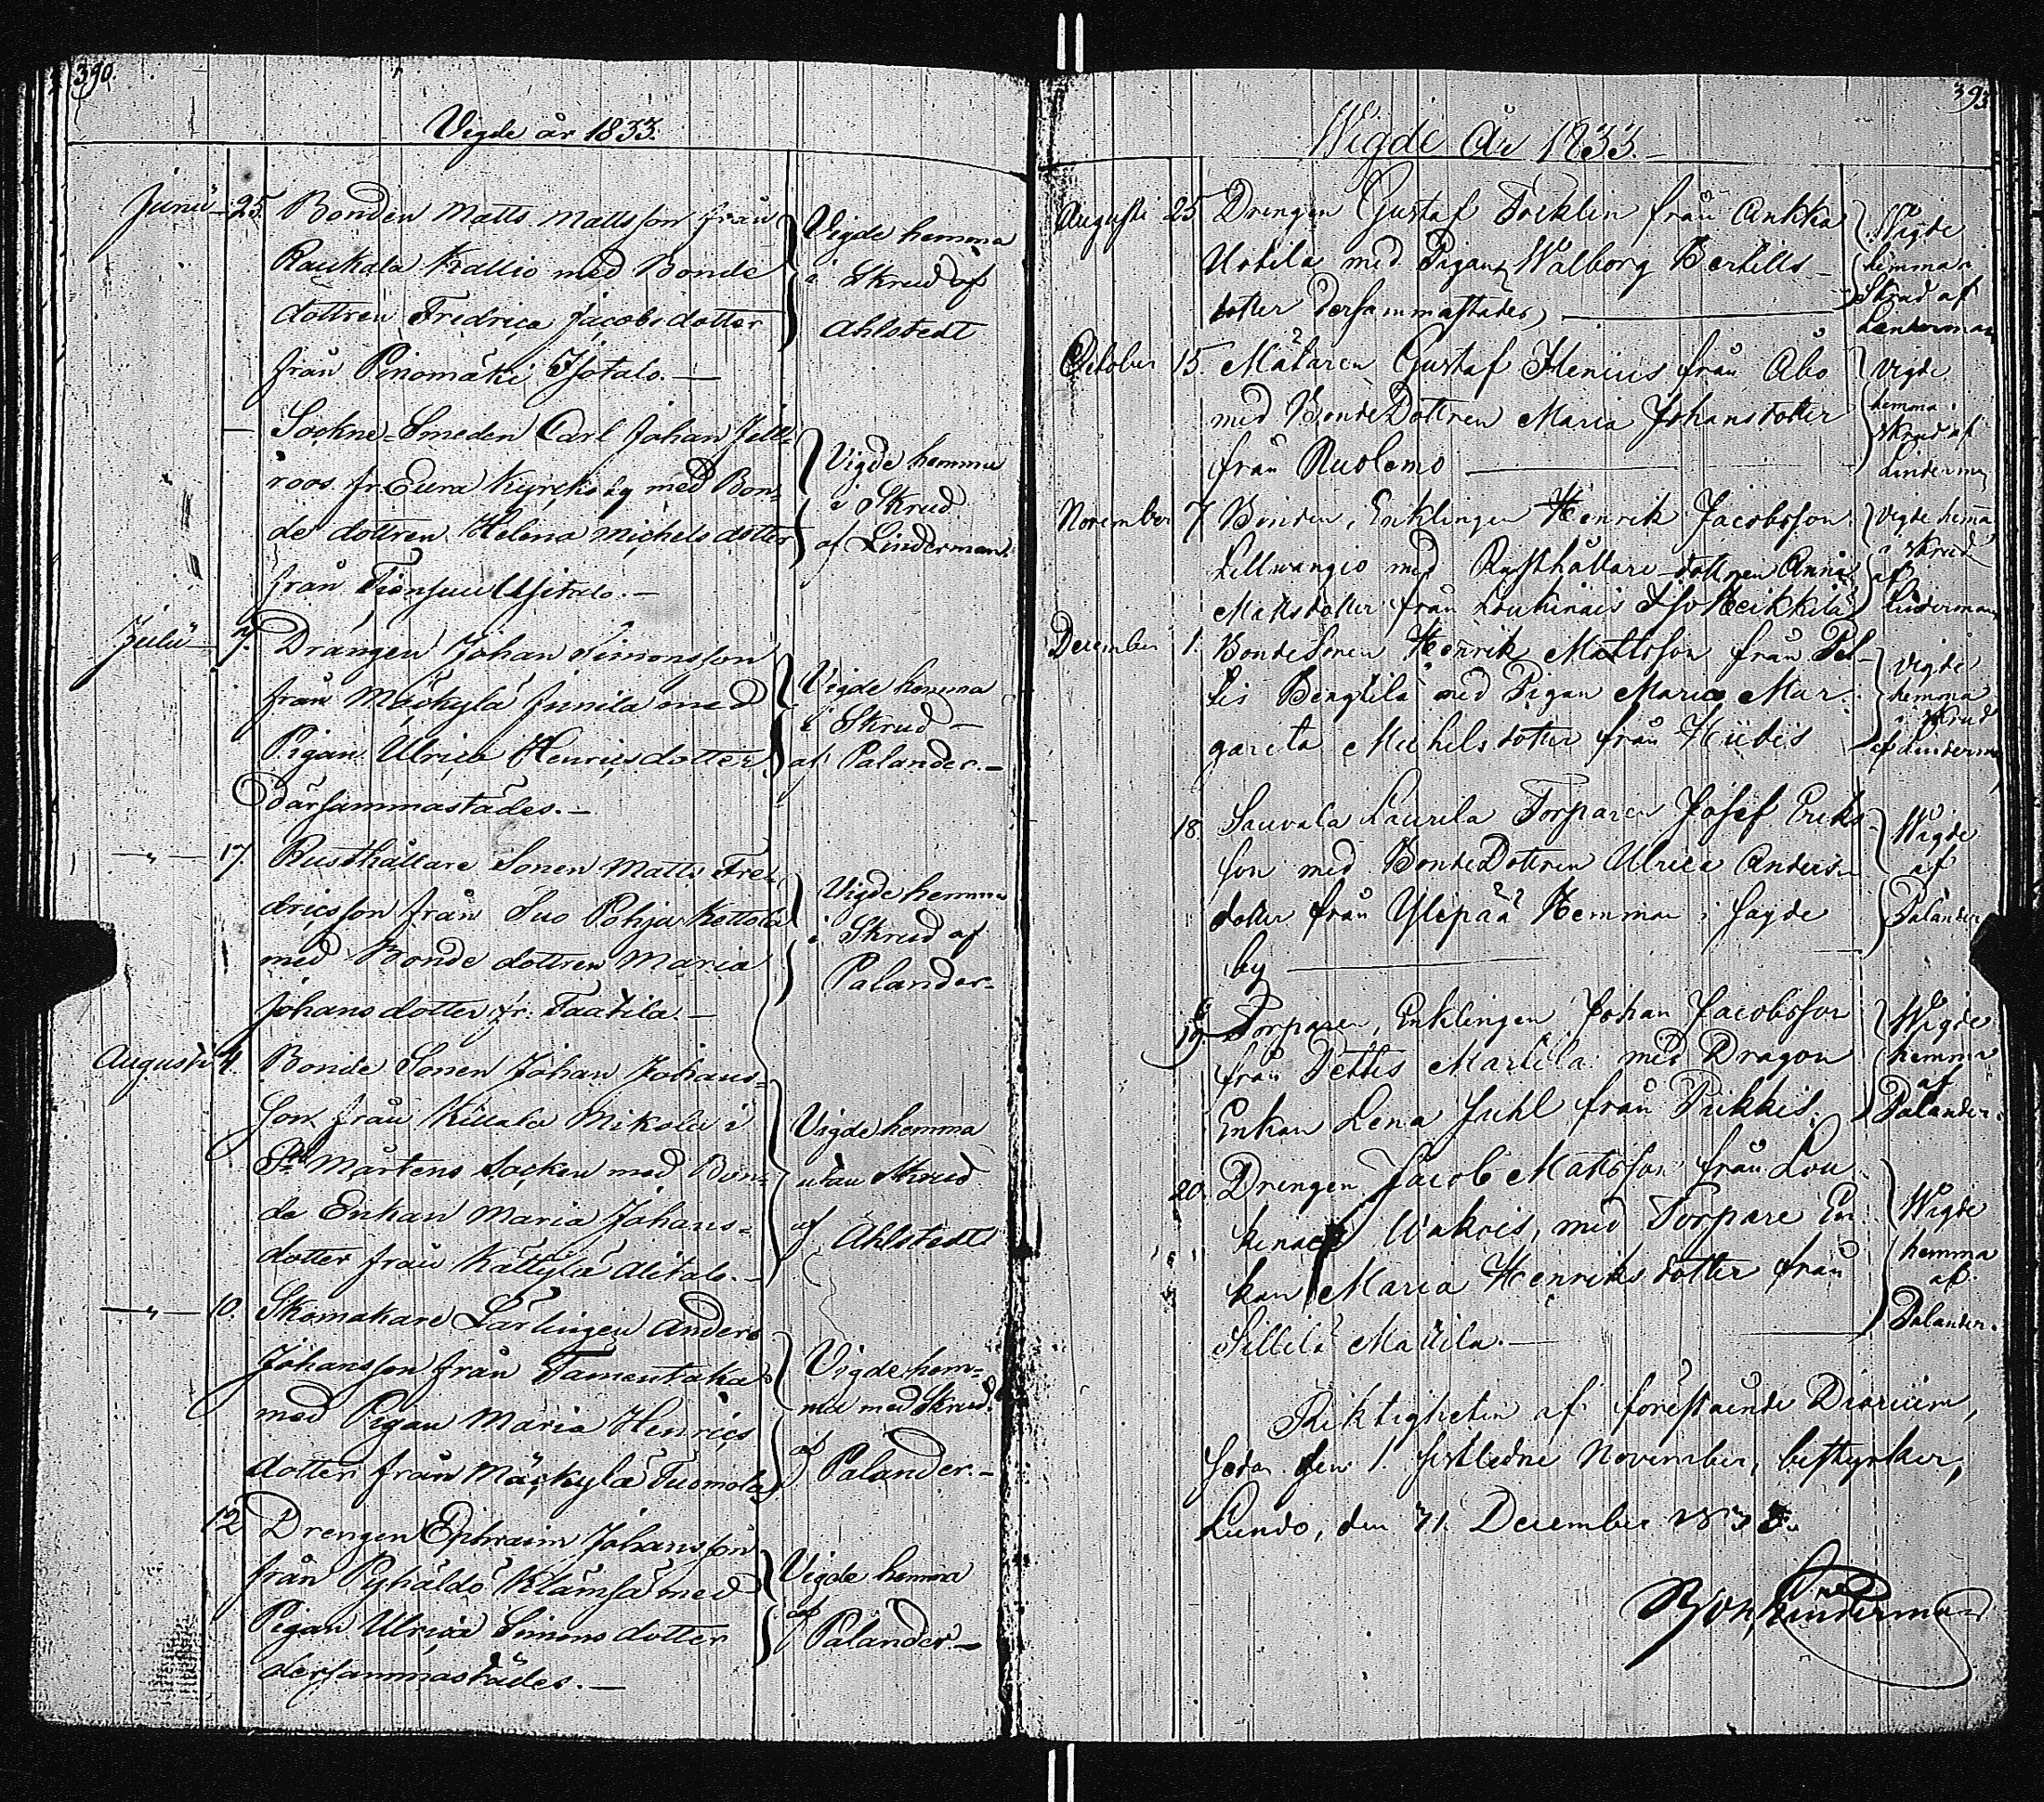 390.
Vigde år 1833.
Junii 25. Bonden Matts Mattsson från
Raukala Krallio med Bonde
dottren Fredrica Jacobsdotter
från Pinomäki Isotalo.—
Vigde hemma
i Skrud af
Ahlstedt
— Sockne-Smeden Carl Johan
roos fr. Eura Kyrckby med Bon-
de dottren Helena Michelsdotter
från
Vigde hemma
i Skrud
af Linderman.
Julii 7. Drängen Johan Simonsson
från Mäckylä Junila med
Pigan Ulrica Henricsdotter
därsammastädes.—
Vigde hemma
i Skrud
af Palander.—
—"— 17. Rusthållare Sonen Matts Fre-
dricsson från Suo Pohja Kettola
med Bonde dottren Maria
Johansdotter fr. Taatila.—
Vigde hemma
i Skrud af
Palander.
Augusti 4. Bonde Sonen Johan Johans-
son från Mikola i
St Mårtens Socken med Bon-
de Enkan Maria Johans-
dotter från Kättylä Alitalo.—
Vigde hemma
utan Skrud
af Ahlstedt
—"— 10. Skomakare Lärlingen Anders
Johansson från Tamentaka
med Pigan Maria Henrics
dotter från Mäckylä Tuomola
Vigde hem-
ma med Skrud.
af
Palander.—
12 Drengen Ephraim Johansson
från Pyhäldö Klämsä med
Pigan Ulrica Simonsdotter
dersammastädes.—
Vigde hemma
af
Palander.—
393
Wigde År 1833.—
Augusti 25 Drengen Gustaf Tocklin från Ankka
Uotila med Pigan Walborg Bertills-
dotter dersammastädes,
Wigde
hemma i
Skrud af
Linderman
October 15. Mätaren Gustaf Henius från Åbo
med BondeDottren Maria Johansdotter
från Ruolemo
Vigde
hemma i
skrud af
Linderman
November 7 Bonden, Enklingen Henrik Jacobsson
Lillwangio med Rusthållare dottren Anna
Mattsdotter från Loukinais Iso Heikkilä
Vigde hemma
i skrud
af
Linderman
December 1. BondeSonen Henrik Mattsson från Pet-
tis Bengtilä med Pigan Maria Mar-
gareta Michelsdotter från Hiidis
Vigde
hemma
i skrud
af Linderman
18. Sauvala Laurila Torparen Josef Eriks
son med BondeDottren Ulrica Anders
dotter från Ylipää Hemman i Sagde
by
Wigde
af
Palander
19 Torparen, Enklingen Johan Jacobsson
från Pettis Martila med Dragon
Enkan Lena Juhl från Pikkis.
Wigde
hemma
af
Palander.
20. Drengen Jacob Mattsson från Lou
kinais Wakois, med Torpare En
kan Maria Henriksdotter från
Sillilä Mattila.—
Wigde
hemma
af
Palander.
Riktigheten af föreståinde Diarium,
sedan den 1. sistledne November, bestyrker,
Lundo, den 31. December 1833.
Linderman